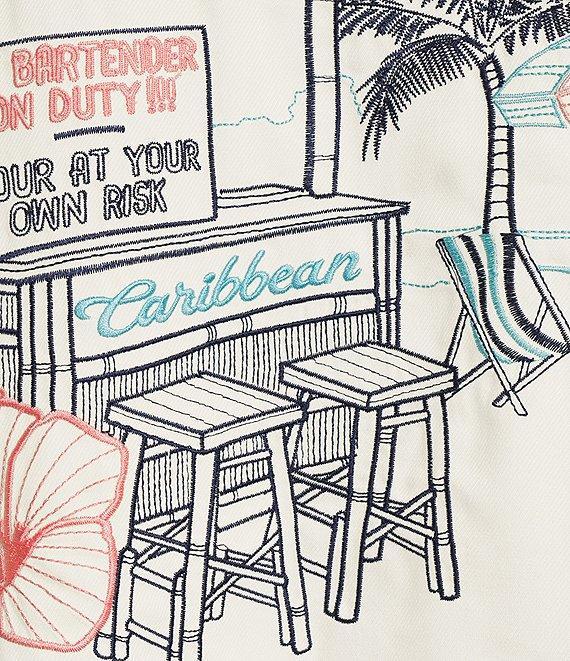 BARTENDER
ON DUTY!!!
OUR AT YOUR
OWN RISK
Caribbean